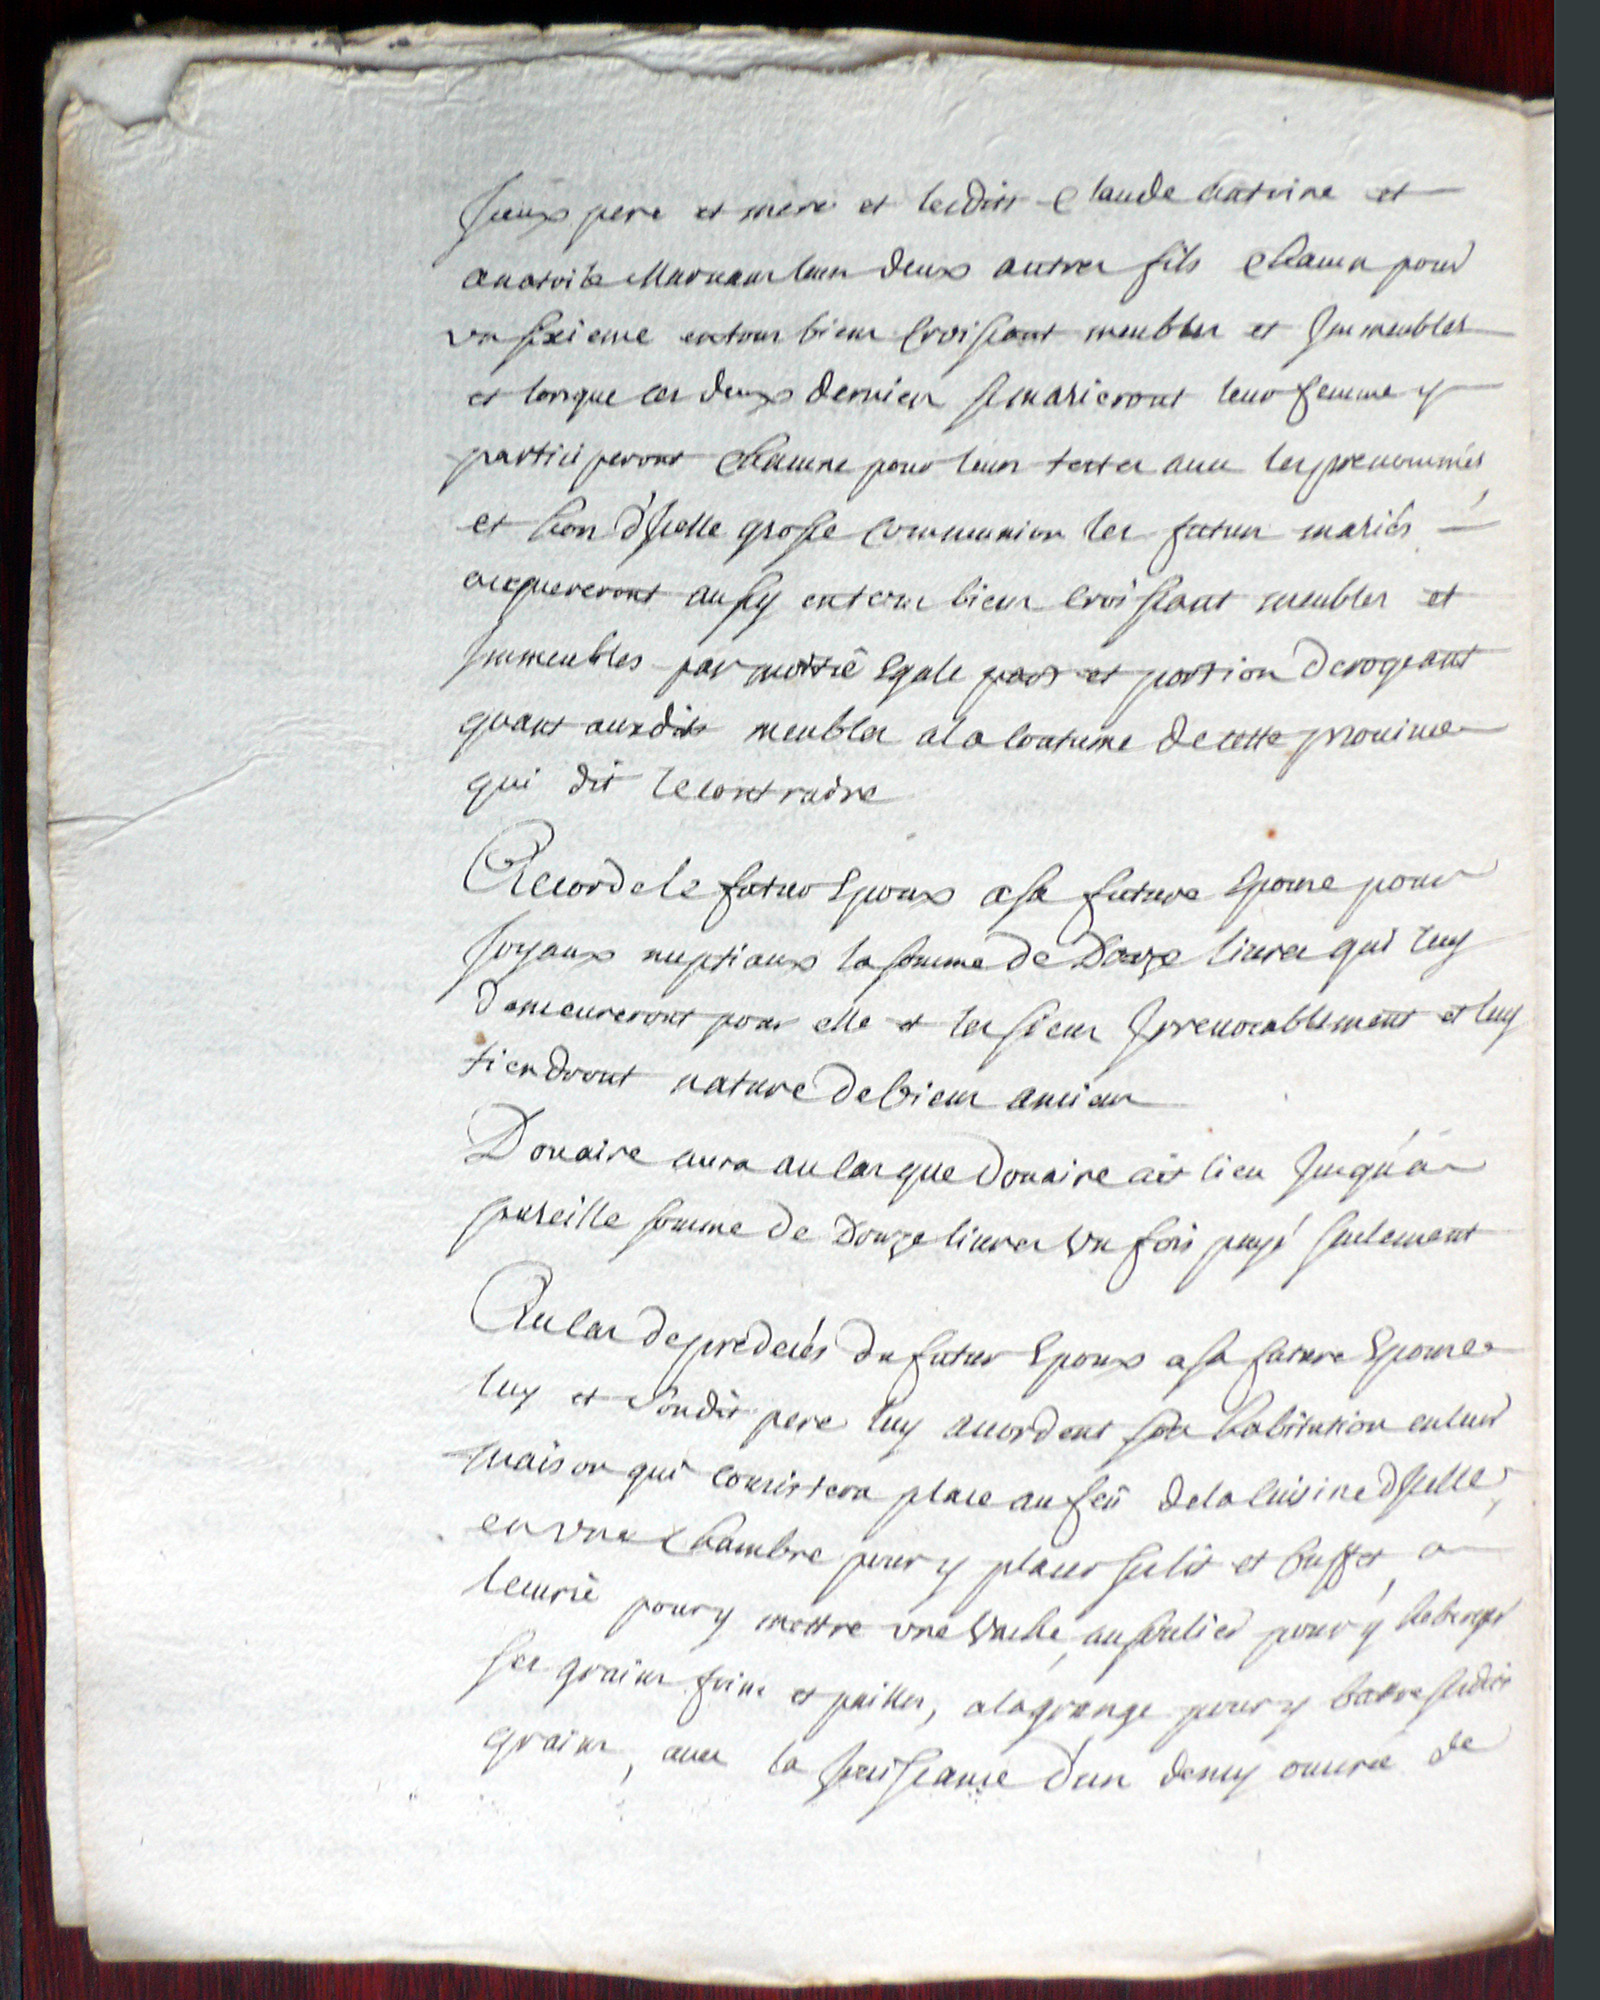 Jceux pere et mere et lesdits Claude antoine et
anatoile leurs deux autres fils chacun pour
un sixieme en tous biens croissant meubles et Jmmeubles
et lorsque ces deux derniers se marieront leur femme y
participeront chacune pour leurs testes avec les prenommés
et hors d'Jcelle grosse communion les futurs mariés
acquereront aussy en tous biens croissant meubles et
Jmmeubles par moitié Egale part et portion derogeant
quant auxdits meubles a la coutume de cette province
qui dit le contraire
Accorde le futur Epoux a sa future Epouse pour
Joyaux nuptiaux la somme de Douze livres qui luy
demeureront pour elle et les siens Jrrevocablement et luy
tiendront nature de biens anciens
Douaire aura au cas que Douaire ait lieu Jusqu'à
pareille somme de Douze livres un fois payé seulement
Au cas de predecés du futur Epoux a sa future Epouse
luy et sondit pere luy accordent son habitation en leur
maison qui consistera place au feü de la cuisine d'Jcelle,
en une chambre pour y placer son lit et buffet, a
lecurie pour y mettre une vache, au solier pour y heberger
ses grains foins et pailles, a la grange pour y battre sesdits
grains, avec la Jouissance d'un demy ouvrée de